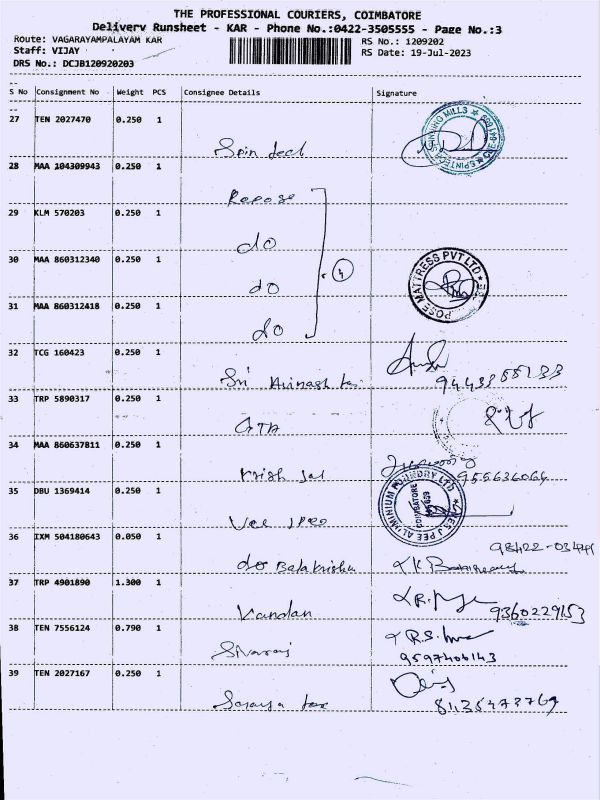 THE PROFESSIONAL COURIERS, COIMBATORE
Delivery Runsheet - KAR - Phone No.:0422-3505555 - Page No.:3
Route: VAGARAYAMPALAYAM KAR
RS No.: 1209202
Staff: VIJAY
RS Date: 19-Jul-2023
DRS No.: DCJB120920203
S No Consignment No Weight PCS Consignee Details Signature
27 TEN 2027470 0.250 1
Spin
28 MAA 104309943 0.250 1
Repose
29 KLM 570203 0.250 1
do
30 MAA 860312340 0.250 1
do
4
MATTRESS PVT LTD
31 MAA 860312418 0.250 1
do
32 TCG 160423 0.250 1
Sri Avinash
33 TRP 5890317 0.250 1
GTA
34 MAA 860637811 0.250 1
Krish
955636064
35 DBU 1369414 0.250 1
Vee
JPEE ALUMINIUM FOUNDRY LTD
COIMBATORE
36 IXM 504180643 0.050 1
do Balakrishna
37 TRP 4901890 1.300 1
Vandan
9360229153
38 TEN 7556124 0.790 1
Sivaraj
9597406143
39 TEN 2027167 0.250 1
8135473769